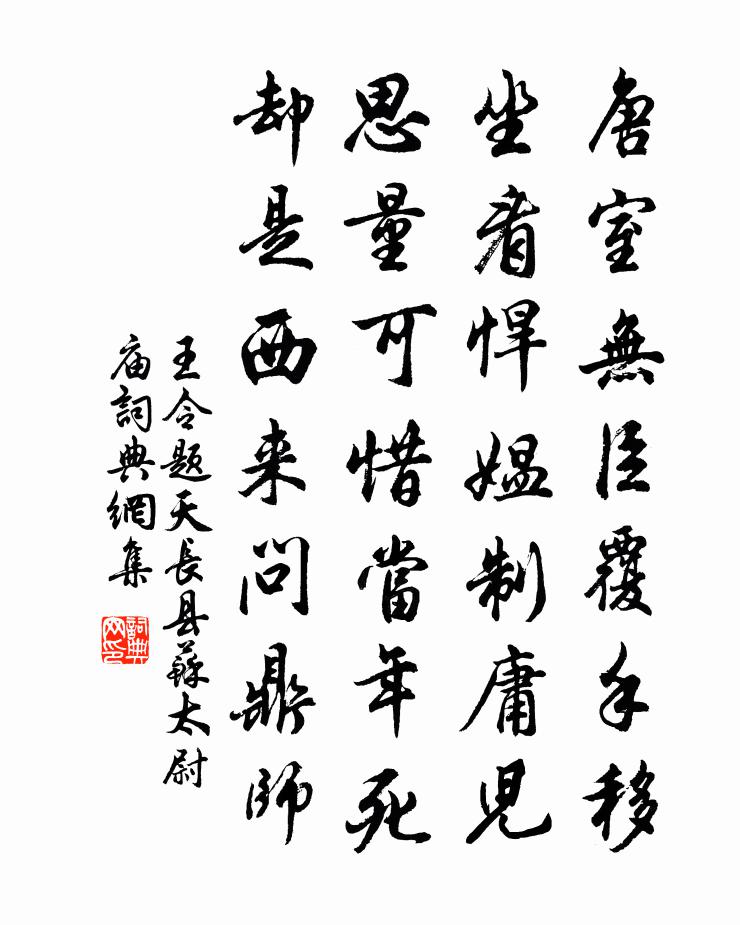 唐室無臣覆手移
坐看悍媪制庸児
思量可惜當年死
却是西来問鼎師
王令题天長县蘇太尉
庙詞典網集
詞典网印